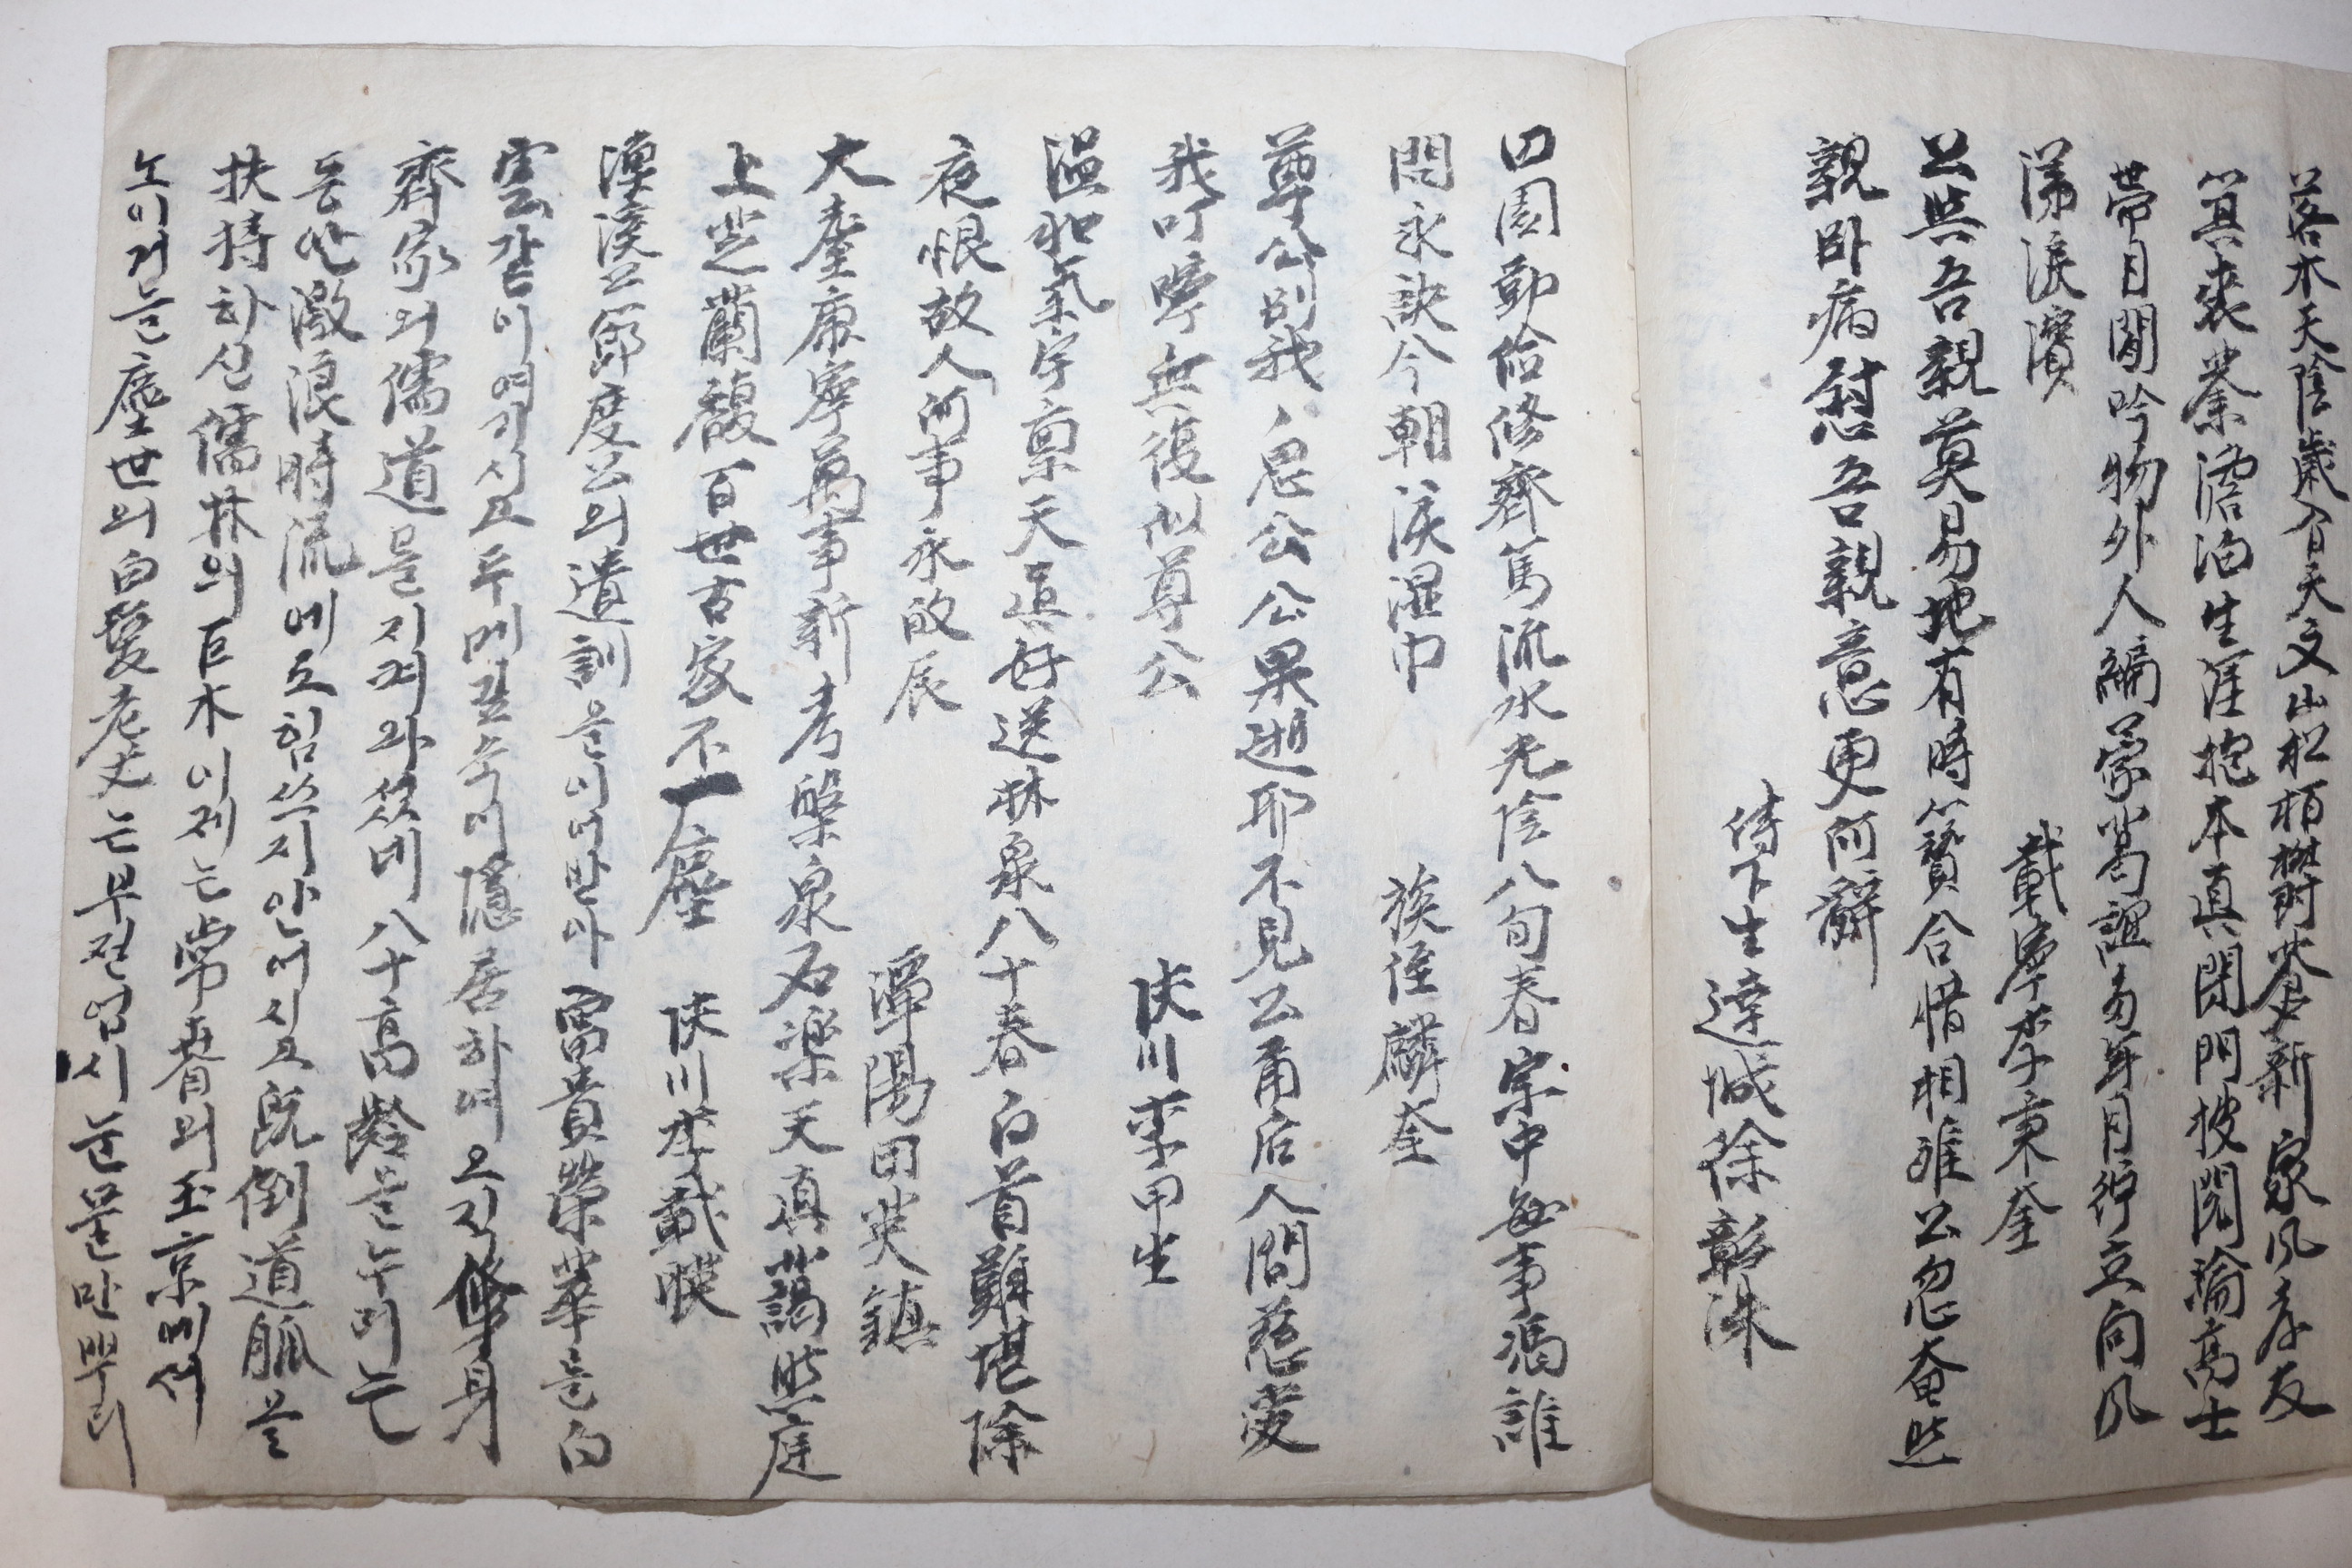 落木天陰歲合天文山松栢欝蒼新家風孝友
箕裘業澹泊生涯抱本眞閉門披閱論高士
帶月閒吟物外人編蒙篤誼多年月竚立向風
涕淚濱 載寧李秉奎
公與吾親莫易地有時簪合惜相離公忽奄然
親卧病慰吾親意更何辭
侍下生達城徐彰洙
四園勤儉修齊篤流水光陰八旬春宗中每事馮誰
問永訣今朝淚濕巾 族侄麟奎
尊公別我我思公公果逝耶不見公甬后人間慈愛
我叮嚀無復似尊公 陜川李甲生
溫和氣宇禀天眞好送林泉八十春白首難堪除
夜恨故人何事永啟辰 潭陽田英鎮
大耋康寧萬事新考槃泉石樂天眞藹然庭
上芝蘭馥百世古家不一塵 陜川李載暎
漢溪公節度公의遺訓을이어받아 富貴榮華는白
雲같이여기시고두메깊숙이隱居하며오직修身
齊家의儒道를지켜와섰네八十高齡을누리는
동안激浪時流에도힘쓰지안어시고旣倒道脈을
扶持하신儒林의巨木이제는常春의玉京에서
노이거늘塵世의白髮老丈는부질없시눈물만뿌리